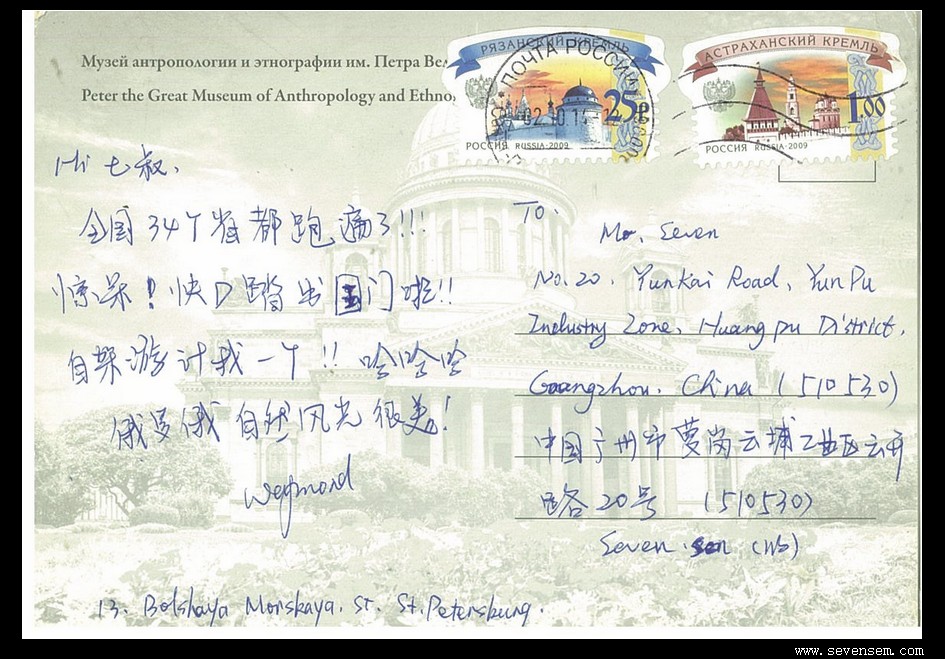 Музей антропологии и этнографии им. Петра Вел
Peter the Great Museum of Anthropology and Ethno
РЯЗАНСКИЙ КРЕМЛЬ
ПОЧТА РОССИИ
25р
02 10 14
РОССИЯ RUSSIA-2009
АСТРАХАНСКИЙ КРЕМЛЬ
1.00
РОССИЯ RUSSIA-2009
Hi 七叔,
全国34个省都跑遍了!!!
惊呆!快D踏出国门啦!!
自架游计我一个!! 哈哈哈
俄罗俄自然风光很美!
Weymond
13. Bolshaya Morskaya. St. St.Petersburg.
TO:
Mr. Seven
No.20, Yunkai Road, YunPu
Industry Zone, Huangpu District,
Guangzhou. China (510530)
中国广州市萝岗云埔工业区云开
路20号 (510530)
Seven sen (收)
www.sevensem.com